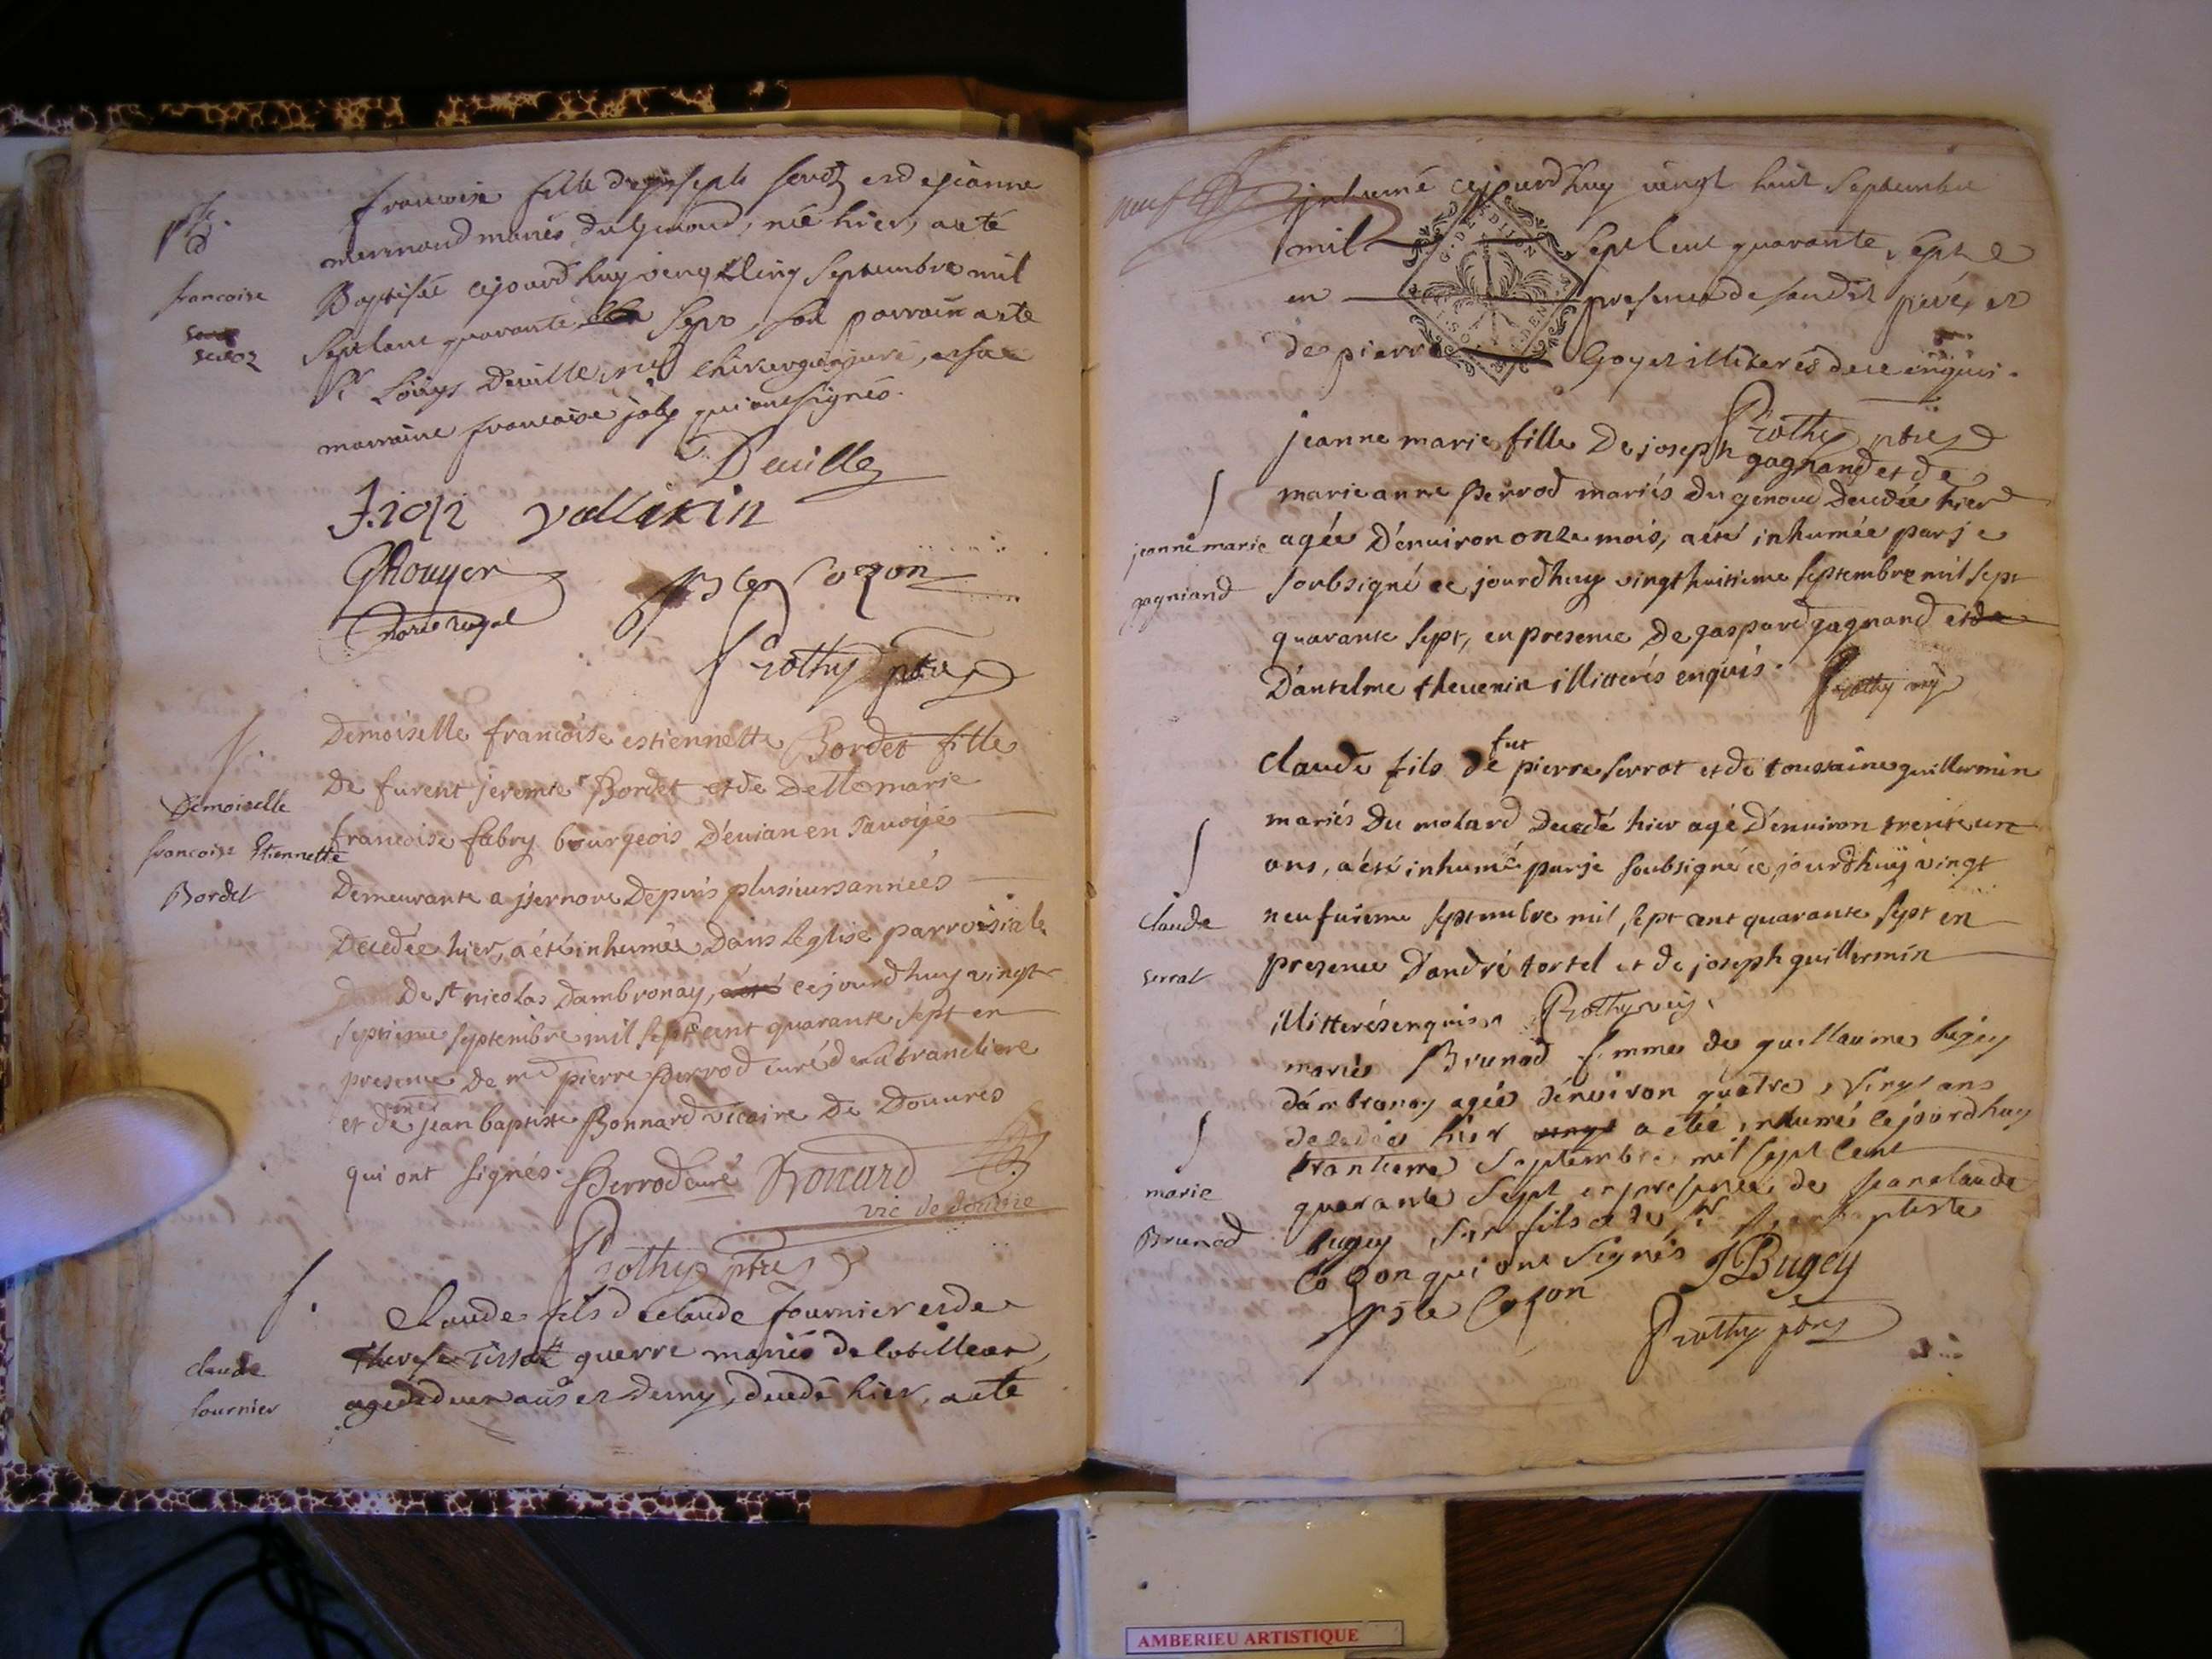 francoise
françoise fille de joseph
mermand mariés du genoud, née hier, a eté
Baptisée cejourd'huy vengt cinq Septembre mil
Septcent quarante Sept, son parrain a eté
Sr Loüys Deuille, chirurgien juré, et sa
marraine francoise joly qui ont signés.
Deuille
F. joly
GRouyer
marie
Cozon
Prothy ptre
Demoiselle francoise estiennette Bordet fille
De furent jeremie Bordet et de Delle marie
Demoiselle
francoise fabry bourgeois D'euian en Sauoÿe
francoise Etiennette
Demeurante a jsernore Depuis plusieurs années
Bordet
Decedée hier, a été inhumée Dans l'eglise parroisiale
De st nicolas Dambronay, cejourd'huy vingt
septieme septembre mil sept cent quarante sept en
presence De mre pierre Perrod curé de la trancliere
et de mre jean baptiste Bonnard vicaire De Douures
qui ont signés. Perrod curé Bonard
vic de douure
Prothy ptre
Claude fils de claude fournier et de
claude
Therese Tissot guerre mariés de
fournier
agé de deux ans et demy, decedé hier, a eté
inhumé cejourd'huy vengt huit Septembre
mil Septcent quarante Sept
en presence de sondit pere, et
de pierre Goyet illiterés de ce enquis.
Prothy ptre
jeanne marie fille De joseph gagnand et de
marie anne Perrod mariés Du genoud Decedée hier
jeanne marie
agée D'enuiron onze mois, a eté inhumée par je
gagniand
soubsigné ce jourd'huy vingt huitieme septembre mil sept
quarante sept, en presence De gaspard gagnand et de
D'antelme theuenin illitterés enquis. Prothy
claude fils de fut pierre serrat et de toussaine guillermin
mariés Du molard Decedé hier agé D'enuiron trente un
ans, a été inhumé par je soubsigné ce jourd'huÿ vingt
claude
neufuieme septembre mil sept cent quarante sept en
serrat
presence D'andré tortel et de joseph guillermin
illitterés enquis. Prothy
marie Brunod femme de guillaume bugey
d'ambronay agée d'enuiron quatre vingt ans
decedée hier a eté inhumé cejourd'huy
trantieme Septembre mil Sept Cent
marie
quarante Sept en presence de jean claude
Brunod
bugey Son fils et de Sr jean baptiste
Cozon qui ont Signés JBugey
Cozon
Prothy ptre
AMBERIEU ARTISTIQUE